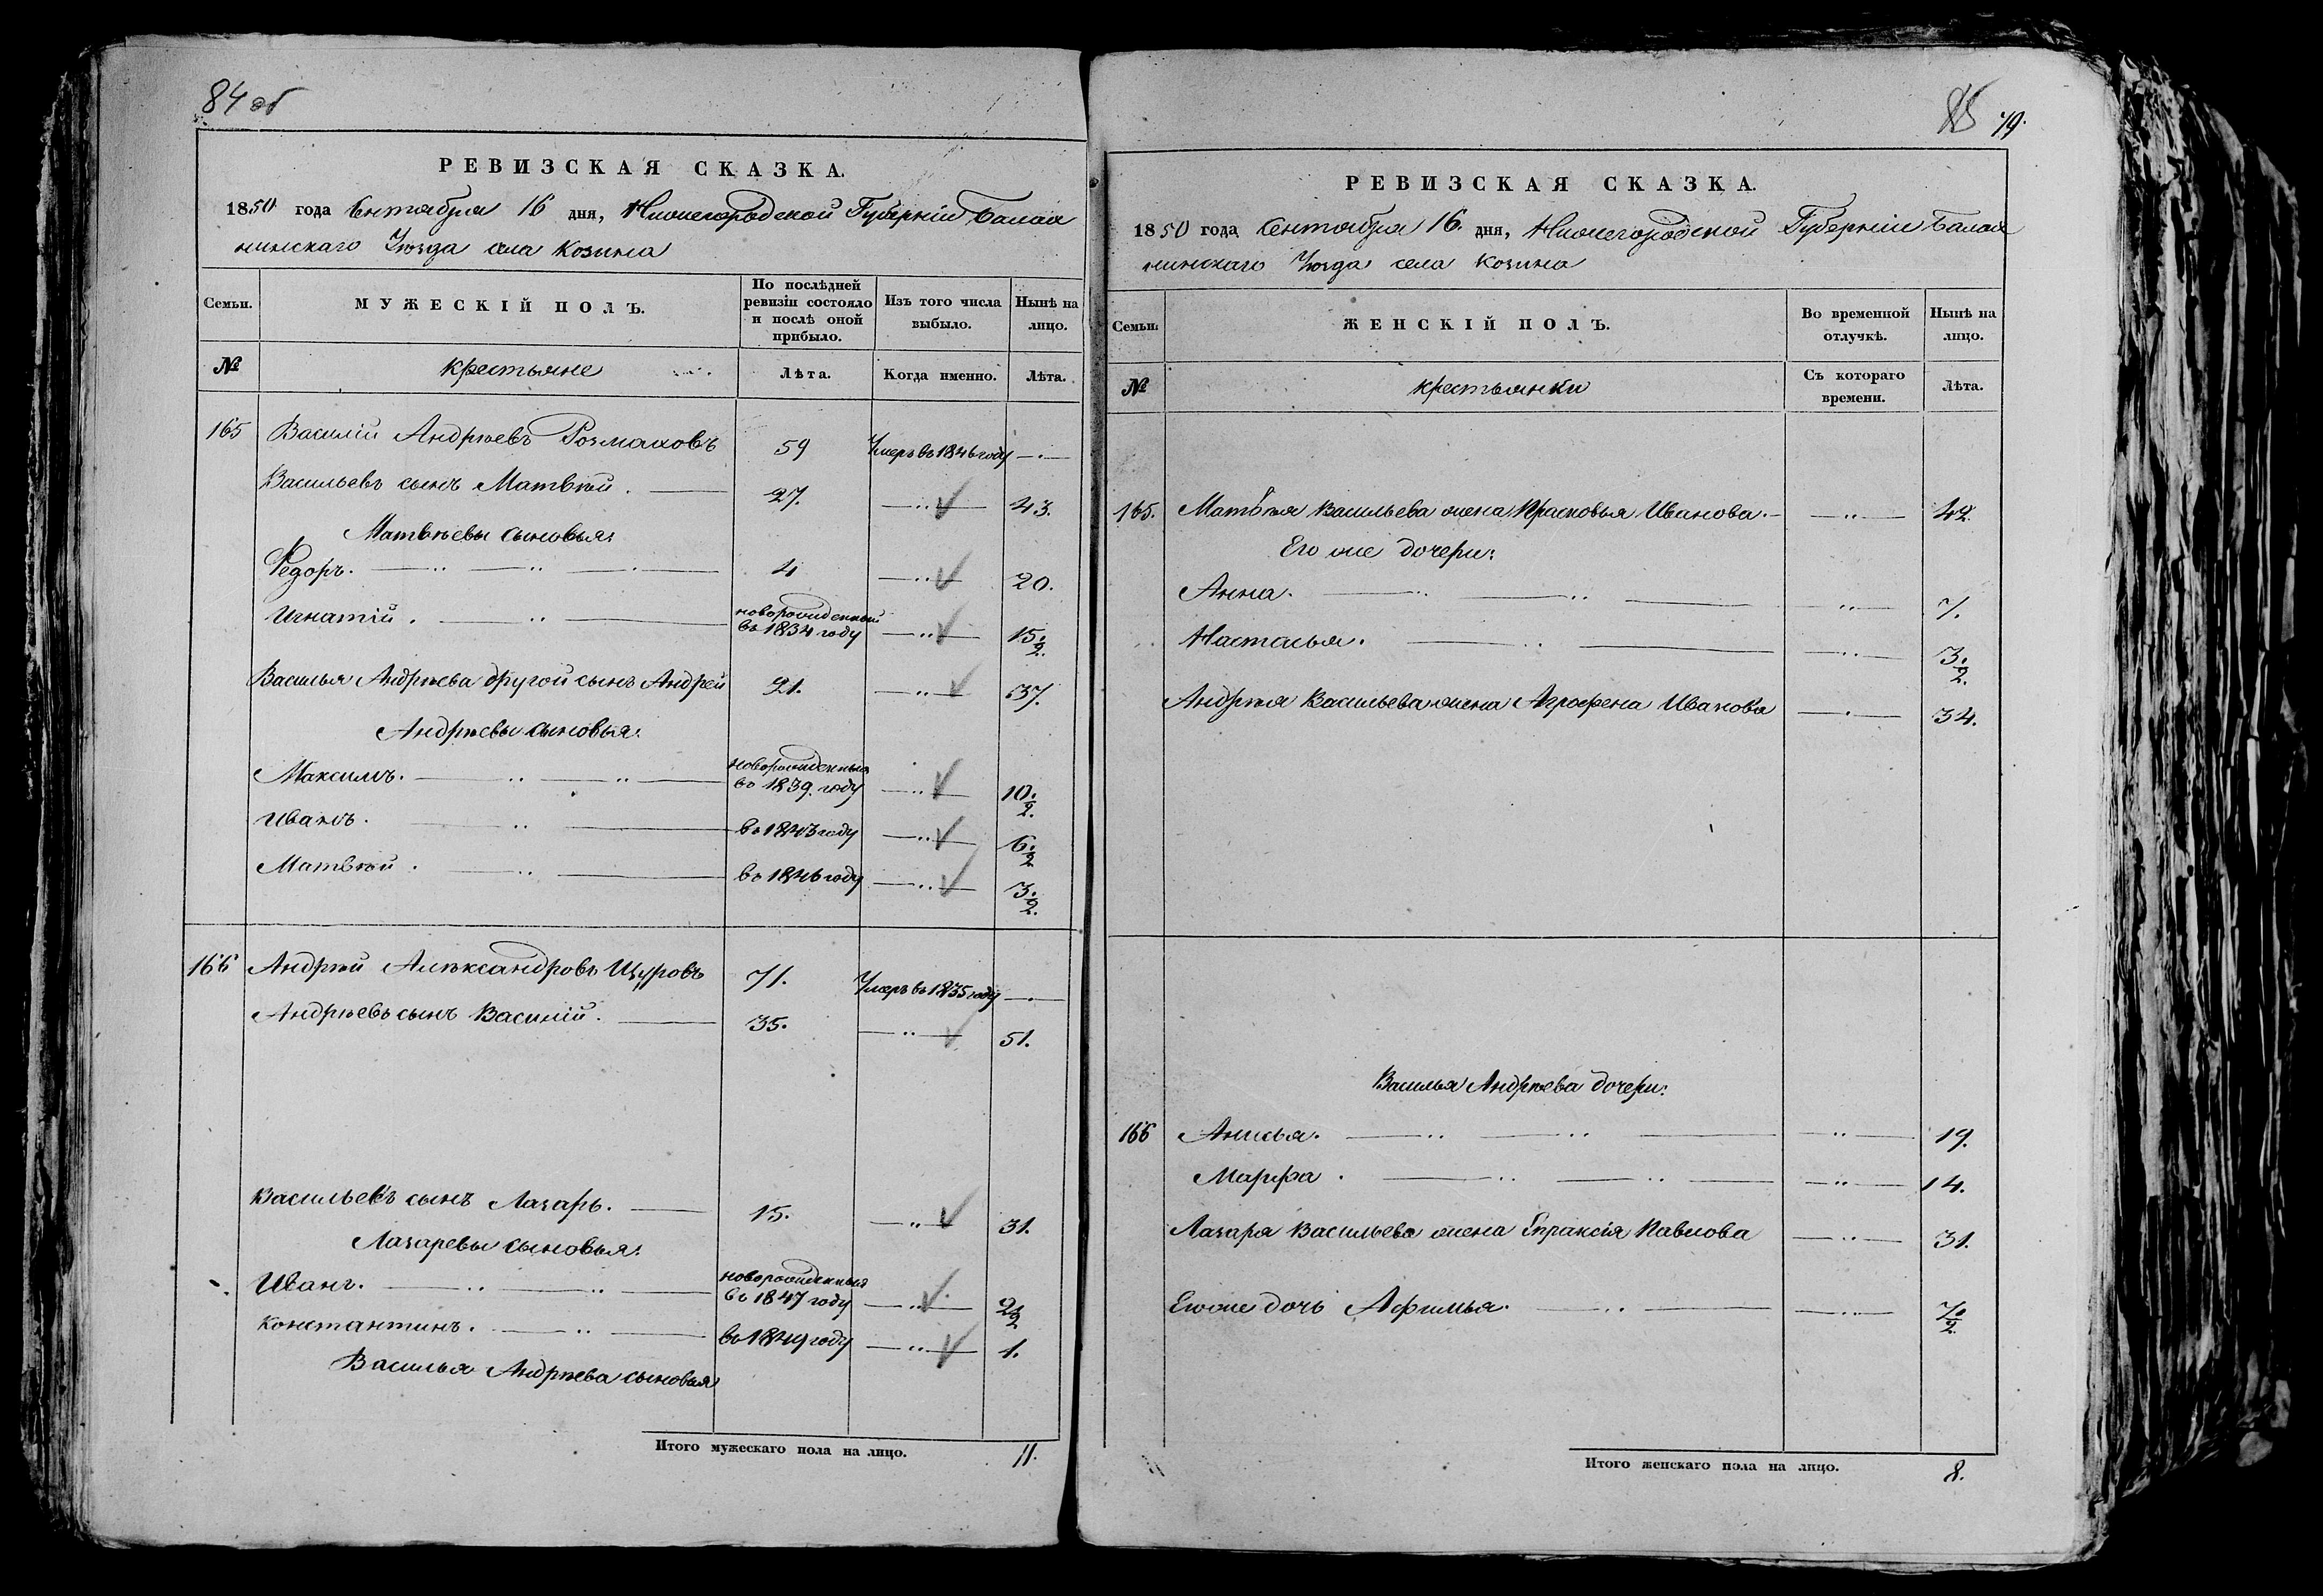 84 об
РЕВИЗСКАЯ СКАЗКА.
1850 года Сентября 16 дня, Нижегородской Губерніи Балах
нинскаго Уѣзда села Козина
Семьи.
МУЖЕСКІЙ ПОЛЪ.
По послѣдней ревизіи состояло и послѣ оной прибыло.
Изъ того числа выбыло.
Нынѣ на лицо.
№ крестьяне Лѣта. Когда именно. Лѣта.
165 Василій Андрѣевъ Розмаховъ 59 Умеръ въ 1846 году —.—
Васильевъ сынъ Матвѣй. — 27. —..— 43.
Матвѣевы сыновья:
Федоръ. — 4 —..— 20.
Игнатій. — новорожденный въ 1834 году —..— 15 1/2.
Василья Андрѣева другой сынъ Андрей 21. —..— 37.
Андрѣевы сыновья:
Максимъ. — новорожденные въ 1839. году —..— 10 1/2.
Иванъ. — въ 1843 году —..— 6 1/2
Матвѣй. — въ 1846 году —..— 3 1/2.
166 Андрѣй Алѣксандровъ Щуровъ 71. Умеръ въ 1835 году —.—
Андрѣевъ сынъ Василій. — 35. —..— 51.
Васильевъ сынъ Лазарь. — 15. —..— 31.
Лазаревы сыновья:
Иванъ. — новорожденныя въ 1847 году —..— 2 1/2
Константинъ. — въ 1849 году —..— 1.
Василья Андрѣева сыновья
Итого мужескаго пола на лицо. 11.
85 79.
РЕВИЗСКАЯ СКАЗКА.
1850 года Сентября 16. дня, Нижегородской Губерніи Балах
нинскаго Уѣзда села Козина
Семьи.
ЖЕНСКІЙ ПОЛЪ.
Во временной отлучкѣ.
Нынѣ на лицо.
№ крестьянки Съ котораго времени. Лѣта.
165. Матвѣя Васильева жена Прасковья Иванова. — —..— 42.
Его же дочери:
Анна. — —..— 7.
Настасья. — —..— 3 1/2.
Андрѣя Васильева жена Аграфена Иванова —.— 34.
Василья Андрѣева дочери:
166 Анисья. — —..— 19.
Марфа. — —..— 14.
Лазаря Васильева жена Епраксія Павлова —..— 31.
Его же дочь Афимья. — —..— 7 1/2.
Итого женскаго пола на лицо. 8.